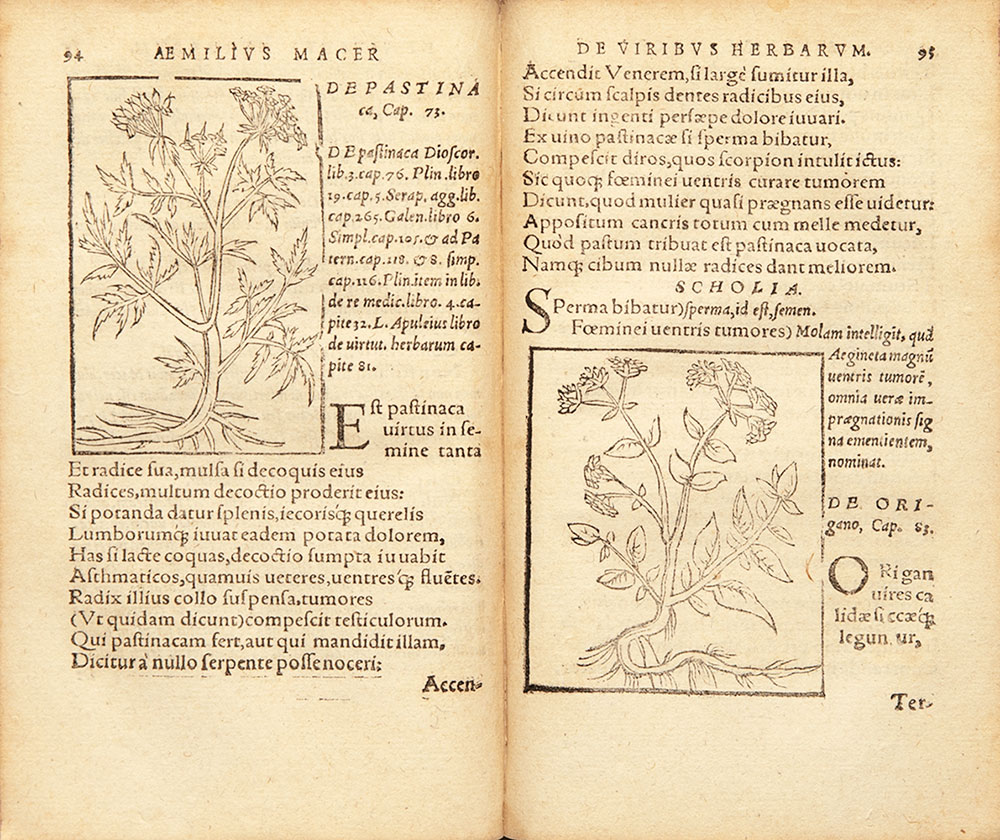 94 AEMILIVS MACER
DE PASTINA
ca, Cap. 73.
DE pastinaca Dioscor.
lib.3.cap.76. Plin.libro
19.cap.5. Serap. agg.lib.
cap.265. Galen.libro 6.
Simpl.cap.105. & ad Pa
tern.cap.118. & 8. simp.
cap.116. Plin.item in lib.
de re medic.libro. 4.ca-
pite 32. L. Apuleius libro
de uirtut. herbarum ca-
pite 81.
Est pastinaca
uirtus in se-
mine tanta
Et radice sua, mulsa si decoquis eius
Radices, multum decoctio proderit eius:
Si potanda datur splenis, iecorisq; querelis
Lumborumq; iuuat eadem potata dolorem,
Has si lacte coquas, decoctio sumpta iuuabit
Asthmaticos, quamuis ueteres, uentresq; fluētes.
Radix illius collo suspensa, tumores
(Vt quidam dicunt) compescit testiculorum.
Qui pastinacam fert, aut qui mandidit illam,
Dicitur à nullo serpente posse noceri:
Accen-
DE VIRIBVS HERBARVM. 95
Accendit Venerem, si largè sumitur illa,
Si circùm scalpis dentes radicibus eius,
Dicunt ingenti persæpe dolore iuuari.
Ex uino pastinacæ si sperma bibatur,
Compescit diros, quos scorpion intulit ictus:
Sic quoq; fœminei uentris curare tumorem
Dicunt, quod mulier quasi prægnans esse uidetur:
Appositum cancris totum cum melle medetur,
Quòd pastum tribuat est pastinaca uocata,
Namq; cibum nullæ radices dant meliorem.
SCHOLIA.
SPerma bibatur) sperma, id est, semen.
Fœminei uentris tumores) Molam intelligit, quā
Aegineta magnū
uentris tumorē,
omnia ueræ im-
prægnationis sig
na ementientem,
nominat.
DE ORI-
gano, Cap. 83.
ORigan
uires ca
lidæ siccæq;
leguntur,
Ter-